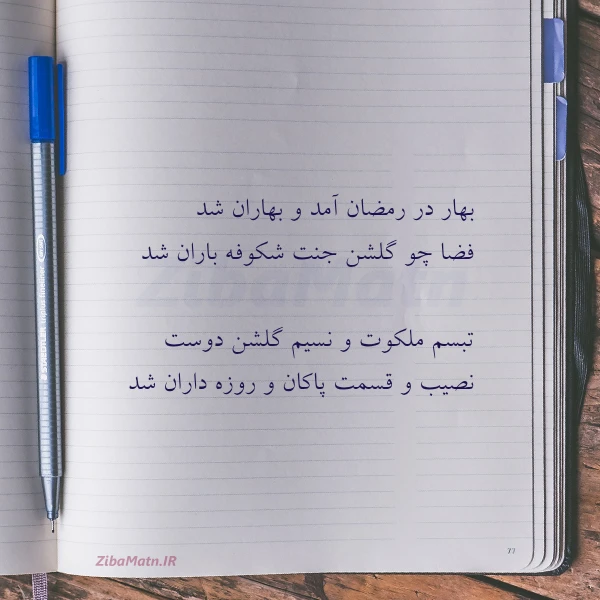 بهار در رمضان آمد و بهاران شد
فضا چو گلشن جنت شکوفه باران شد
تبسم ملکوت و نسیم گلشن دوست
نصیب و قسمت پاکان و روزه داران شد
ZibaMatn.IR
77
STAEDTLER triplus fineliner